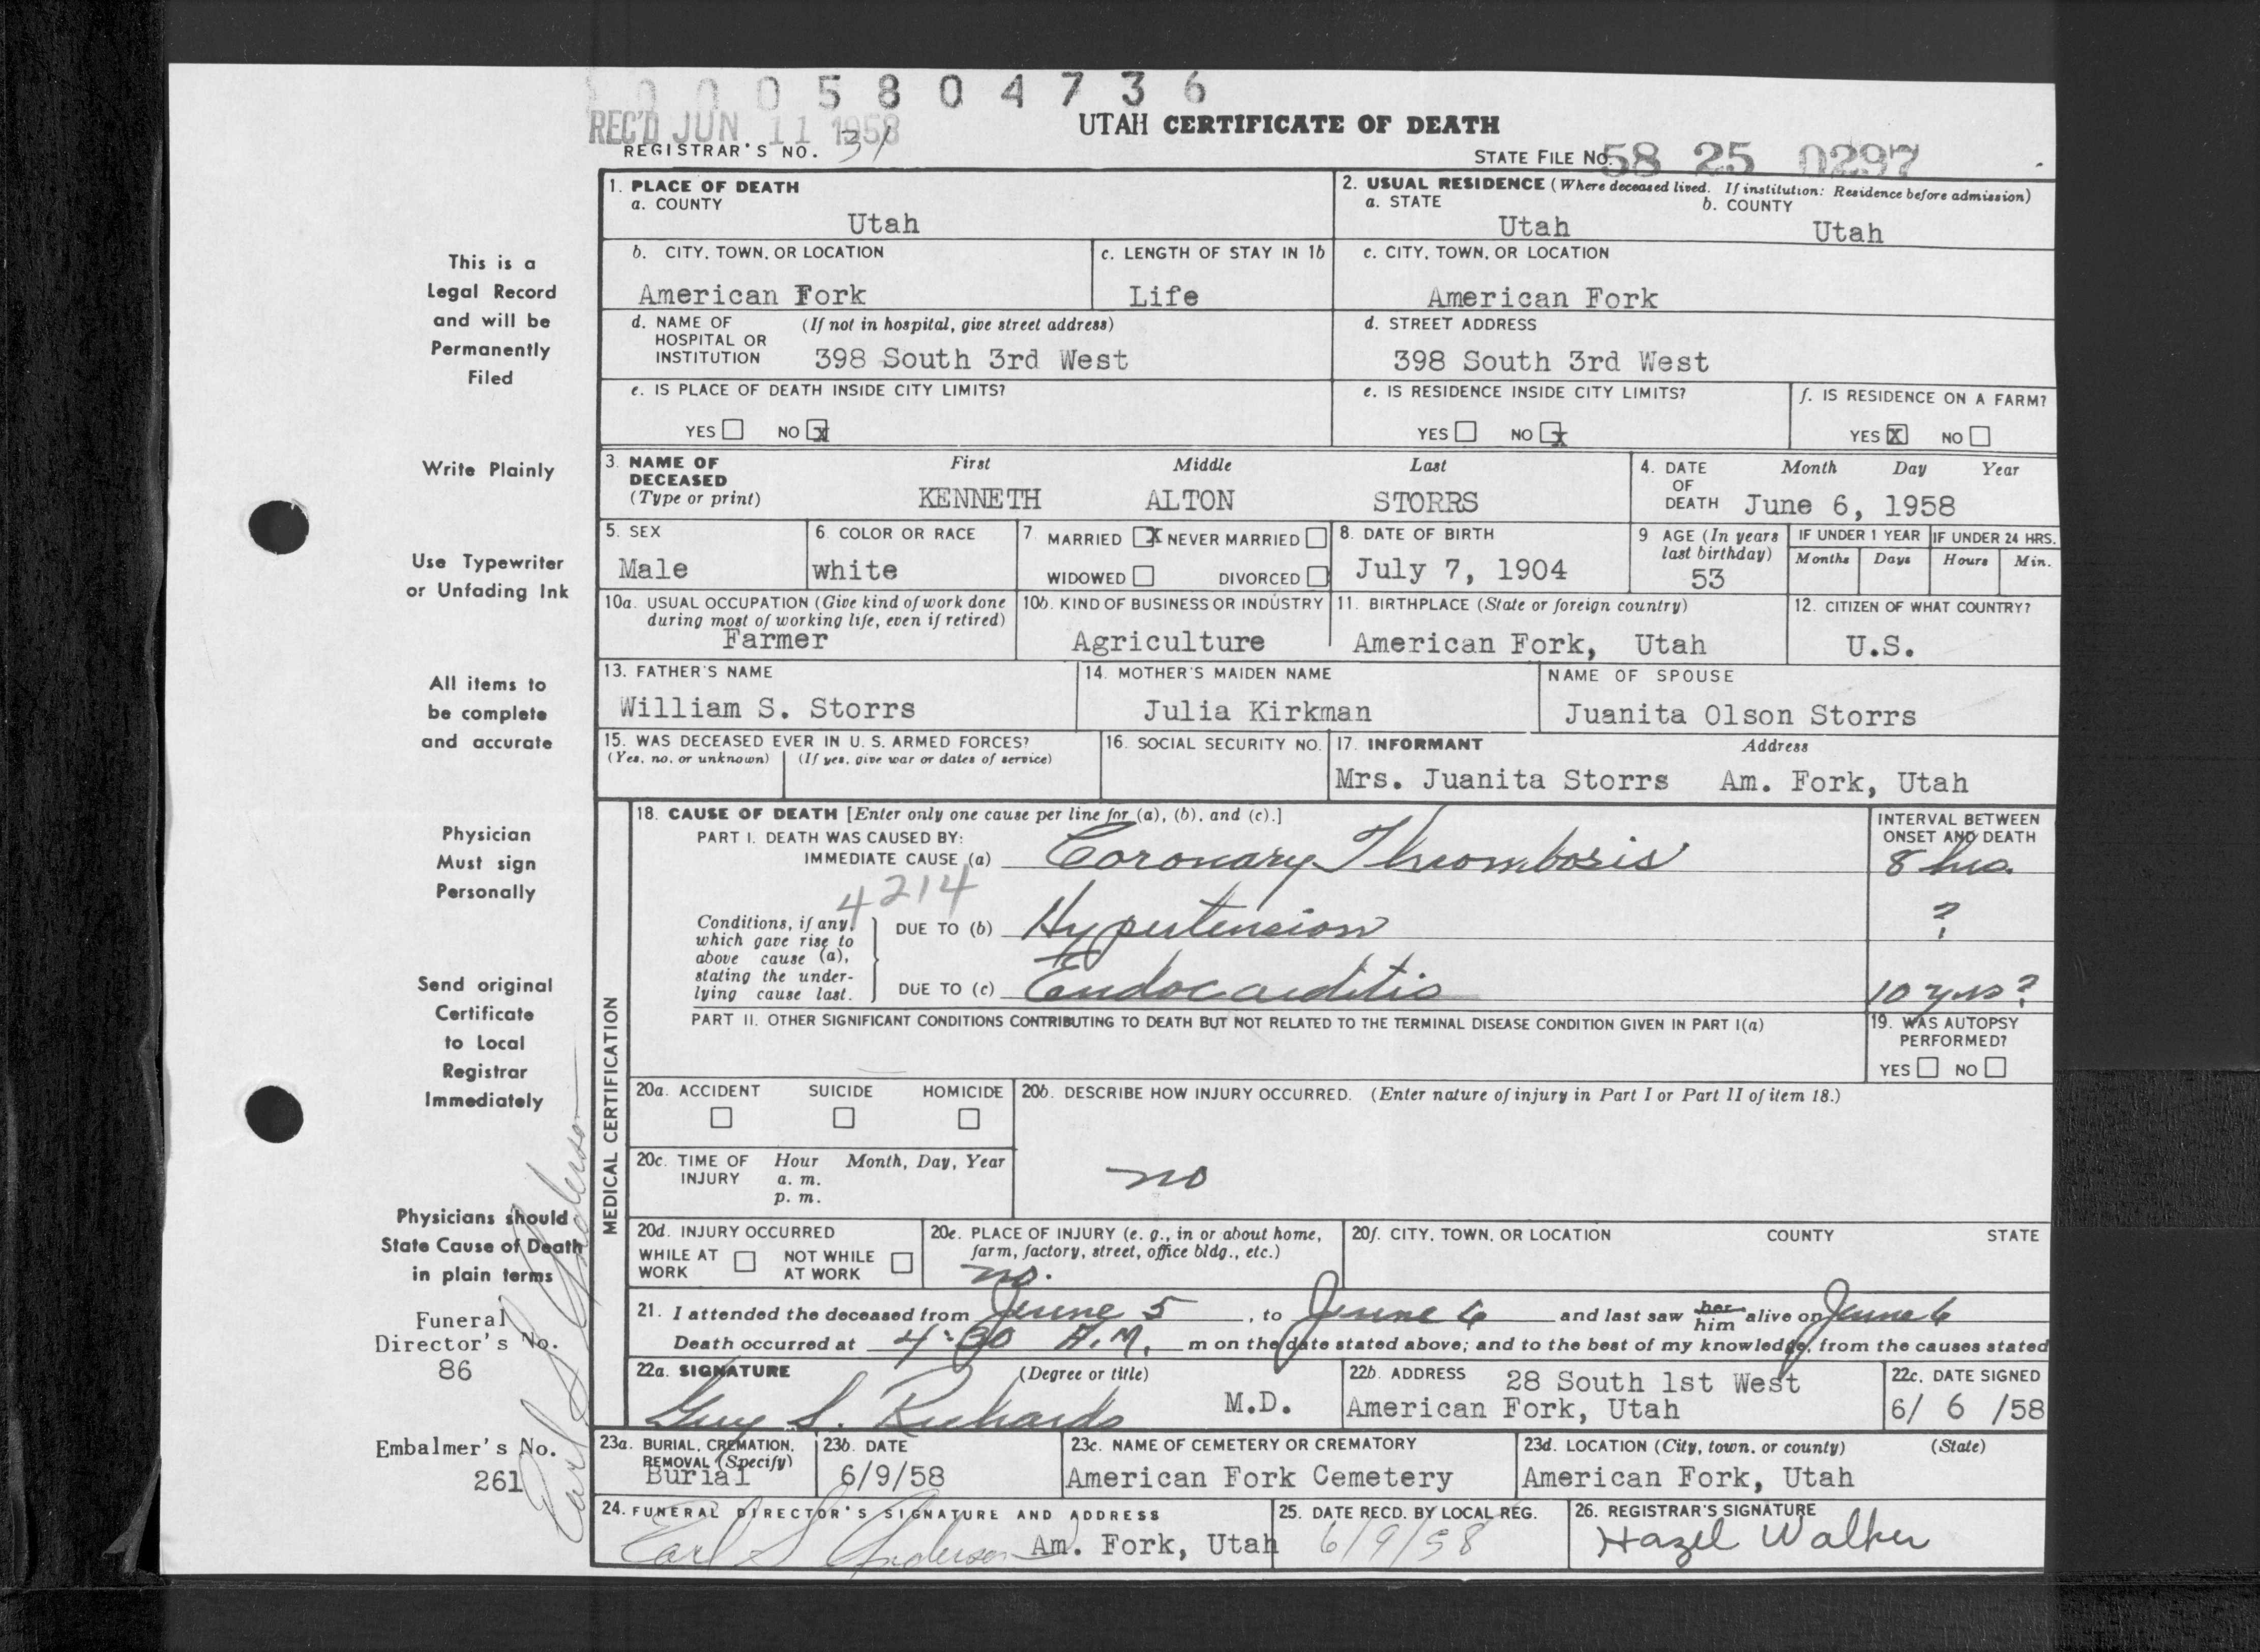 0 0 0 5 8 0 4 7 3 6
REC'D JUN 11 1958
UTAH CERTIFICATE OF DEATH
REGISTRAR'S NO. 31
STATE FILE NO. 58 25 0297
This is a
Legal Record
and will be
Permanently
Filed
Write Plainly
Use Typewriter
or Unfading Ink
All items to
be complete
and accurate
Physician
Must sign
Personally
Send original
Certificate
to Local
Registrar
Immediately
Physicians should
State Cause of Death
in plain terms
Funeral
Director's No.
86
Embalmer's No.
261
Earl S. Anderson
1. PLACE OF DEATH
a. COUNTY
Utah
2. USUAL RESIDENCE (Where deceased lived. If institution: Residence before admission)
a. STATE b. COUNTY
Utah Utah
b. CITY, TOWN, OR LOCATION
American Fork
c. LENGTH OF STAY IN 1b
Life
c. CITY, TOWN, OR LOCATION
American Fork
d. NAME OF (If not in hospital, give street address)
HOSPITAL OR
INSTITUTION 398 South 3rd West
d. STREET ADDRESS
398 South 3rd West
e. IS PLACE OF DEATH INSIDE CITY LIMITS?
YES NO X
e. IS RESIDENCE INSIDE CITY LIMITS?
YES NO X
f. IS RESIDENCE ON A FARM?
YES X NO
3. NAME OF First Middle Last
DECEASED
(Type or print) KENNETH ALTON STORRS
4. DATE Month Day Year
OF
DEATH June 6, 1958
5. SEX
Male
6. COLOR OR RACE
white
7. MARRIED X NEVER MARRIED
WIDOWED DIVORCED
8. DATE OF BIRTH
July 7, 1904
9 AGE (In years
last birthday)
53
IF UNDER 1 YEAR
Months Days
IF UNDER 24 HRS.
Hours Min.
10a. USUAL OCCUPATION (Give kind of work done
during most of working life, even if retired)
Farmer
10b. KIND OF BUSINESS OR INDUSTRY
Agriculture
11. BIRTHPLACE (State or foreign country)
American Fork, Utah
12. CITIZEN OF WHAT COUNTRY?
U.S.
13. FATHER'S NAME
William S. Storrs
14. MOTHER'S MAIDEN NAME
Julia Kirkman
NAME OF SPOUSE
Juanita Olson Storrs
15. WAS DECEASED EVER IN U. S. ARMED FORCES?
(Yes, no, or unknown) (If yes, give war or dates of service)
16. SOCIAL SECURITY NO.
17. INFORMANT Address
Mrs. Juanita Storrs Am. Fork, Utah
MEDICAL CERTIFICATION
18. CAUSE OF DEATH [Enter only one cause per line for (a), (b), and (c).]
PART I. DEATH WAS CAUSED BY:
IMMEDIATE CAUSE (a) Coronary Thrombosis
INTERVAL BETWEEN
ONSET AND DEATH
8 hrs.
4214
Conditions, if any,
which gave rise to
above cause (a),
stating the under-
lying cause last.
DUE TO (b) Hypertension ?
DUE TO (c) Endocarditis 10 yrs?
PART II. OTHER SIGNIFICANT CONDITIONS CONTRIBUTING TO DEATH BUT NOT RELATED TO THE TERMINAL DISEASE CONDITION GIVEN IN PART I(a)
19. WAS AUTOPSY
PERFORMED?
YES NO
20a. ACCIDENT SUICIDE HOMICIDE
20b. DESCRIBE HOW INJURY OCCURRED. (Enter nature of injury in Part I or Part II of item 18.)
no
20c. TIME OF Hour Month, Day, Year
INJURY a. m.
p. m.
20d. INJURY OCCURRED
WHILE AT WORK NOT WHILE AT WORK
20e. PLACE OF INJURY (e. g., in or about home,
farm, factory, street, office bldg., etc.)
no.
20f. CITY, TOWN, OR LOCATION COUNTY STATE
21. I attended the deceased from June 5, to June 6 and last saw her him alive on June 6
Death occurred at 4:30 A.M. m on the date stated above; and to the best of my knowledge, from the causes stated
22a. SIGNATURE (Degree or title)
Guy S. Richards M.D.
22b. ADDRESS 28 South 1st West
American Fork, Utah
22c. DATE SIGNED
6/ 6 /58
23a. BURIAL, CREMATION,
REMOVAL (Specify)
Burial
23b. DATE
6/9/58
23c. NAME OF CEMETERY OR CREMATORY
American Fork Cemetery
23d. LOCATION (City, town, or county) (State)
American Fork, Utah
24. FUNERAL DIRECTOR'S SIGNATURE AND ADDRESS
Earl S Anderson Am. Fork, Utah
25. DATE RECD. BY LOCAL REG.
6/9/58
26. REGISTRAR'S SIGNATURE
Hazel Walker